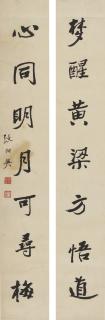 梦醒黄梁方悟道
心同明月可尋梅